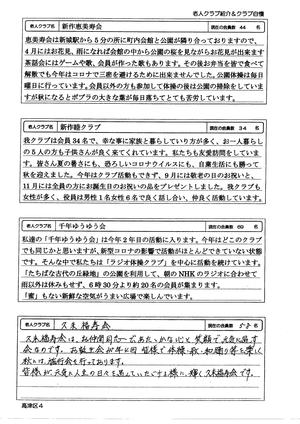 老人クラブ紹介&クラブ自慢
老人クラブ名 新作恵美寿会 現在の会員数 44 名
恵美寿会は新城駅から5分の所に町内会館と公園が隣り合っておりますので、
4月にはお花見、雨になれば会館の中から公園の桜を見ながらお花見が出来ます
茶話会にはゲームや歌、会員が作った歌もあります。その後お弁当を皆で食べて
解散でも今年はコロナで三密を避けるために出来ませんでした。公園体操は毎日
曜日に行っています。会員以外の方も参加して体操の後は公園の掃除をしていま
すが秋になるとポプラの大きな葉が毎日落ちてとても苦労しています。
老人クラブ名 新作睦クラブ 現在の会員数 34 名
我クラブは会員34名で、幸な事に家族と暮らしている方が多く、お一人暮らし
の5人の方も子供さんが良く来てくれています。私たちも友愛訪問をしていま
す。皆さん夏の暑さにも、恐ろしいコロナウイルスにも、自粛生活にも勝って
秋を迎えました。今年はクラブ活動もできず、9月には敬老の日のお祝いと、
11月には全員の方にお誕生日のお祝いの品をプレゼントしました。我クラブも
女性が多く、役員は男性1名女性6名で良く話し合い、仲良く活動しています。
老人クラブ名 千年ゆうゆう会 現在の会員数 69 名
私達の「千年ゆうゆう会」は今年2年目の活動に入ります。今年はどこのクラブ
でも同じかと思いますが、新型コロナの影響で活動がほとんどできていない状態
です。そんな中で私たちは「ラジオ体操クラブ」を中心に活動を続けています。
「たちばな古代の丘緑地」の公園を利用して、朝のNHKのラジオに合わせて
雨以外は休みもせず、6時30分より約20名の会員が集まります。
「蜜」もない新鮮な空気がうまい広場で楽しんでいます。
老人クラブ名 久末福寿会 現在の会員数 名
久末福寿会は、お仲間同士で
会なのです。
高津区4